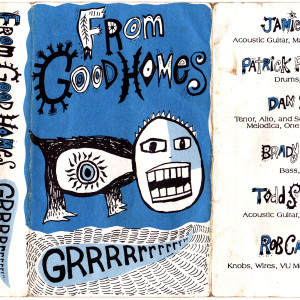 From Good Homes GRRRRrrrr
From
Good Homes
GRRRRrrrrrrr
Jamie
Acoustic Guitar,
Patrick
Drums,
Dan
Tenor, Alto, and
Melodica,
Brady
Bass,
Todd S
Acoustic Guitar,
Rob
Knobs, Wires, VU